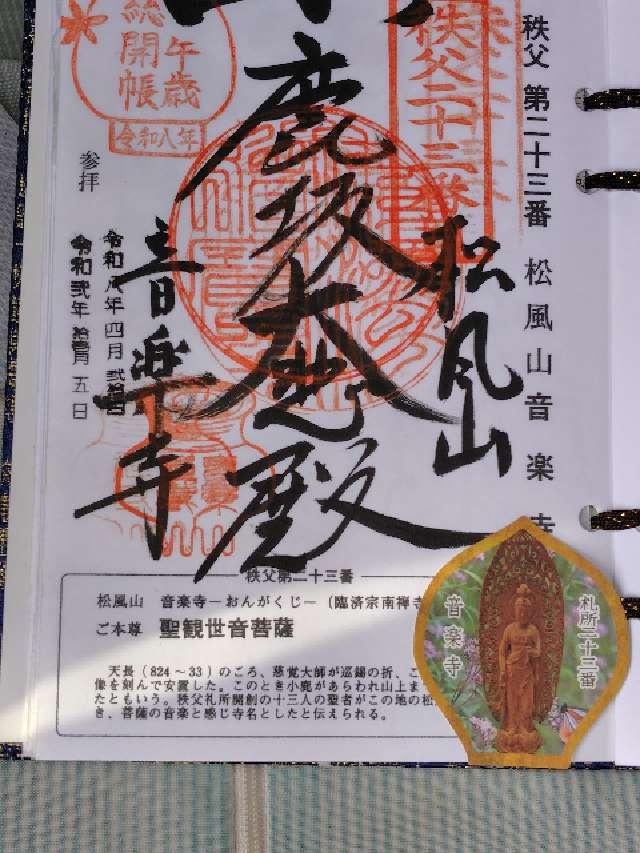 秩父 第二十三番 松風山音楽寺
秩父二十三番
午歳
総開帳
令和八年
参拝
鹿坂大悲殿
松風山
音楽寺
令和八年四月弐拾四日
令和弐年拾壱月五日
秩父第二十三番
松風山 音楽寺－おんがくじ－（臨済宗南禅寺
ご本尊 聖観世音菩薩
天長（824～33）のころ、慈覚大師が巡錫の折、こ
像を刻んで安置した。このとき小鹿があらわれ山上ま
たともいう。秩父札所開創の十三人の聖者がこの地の松
き、菩薩の音楽と感じ寺名としたと伝えられる。
札所二十三番
音楽寺